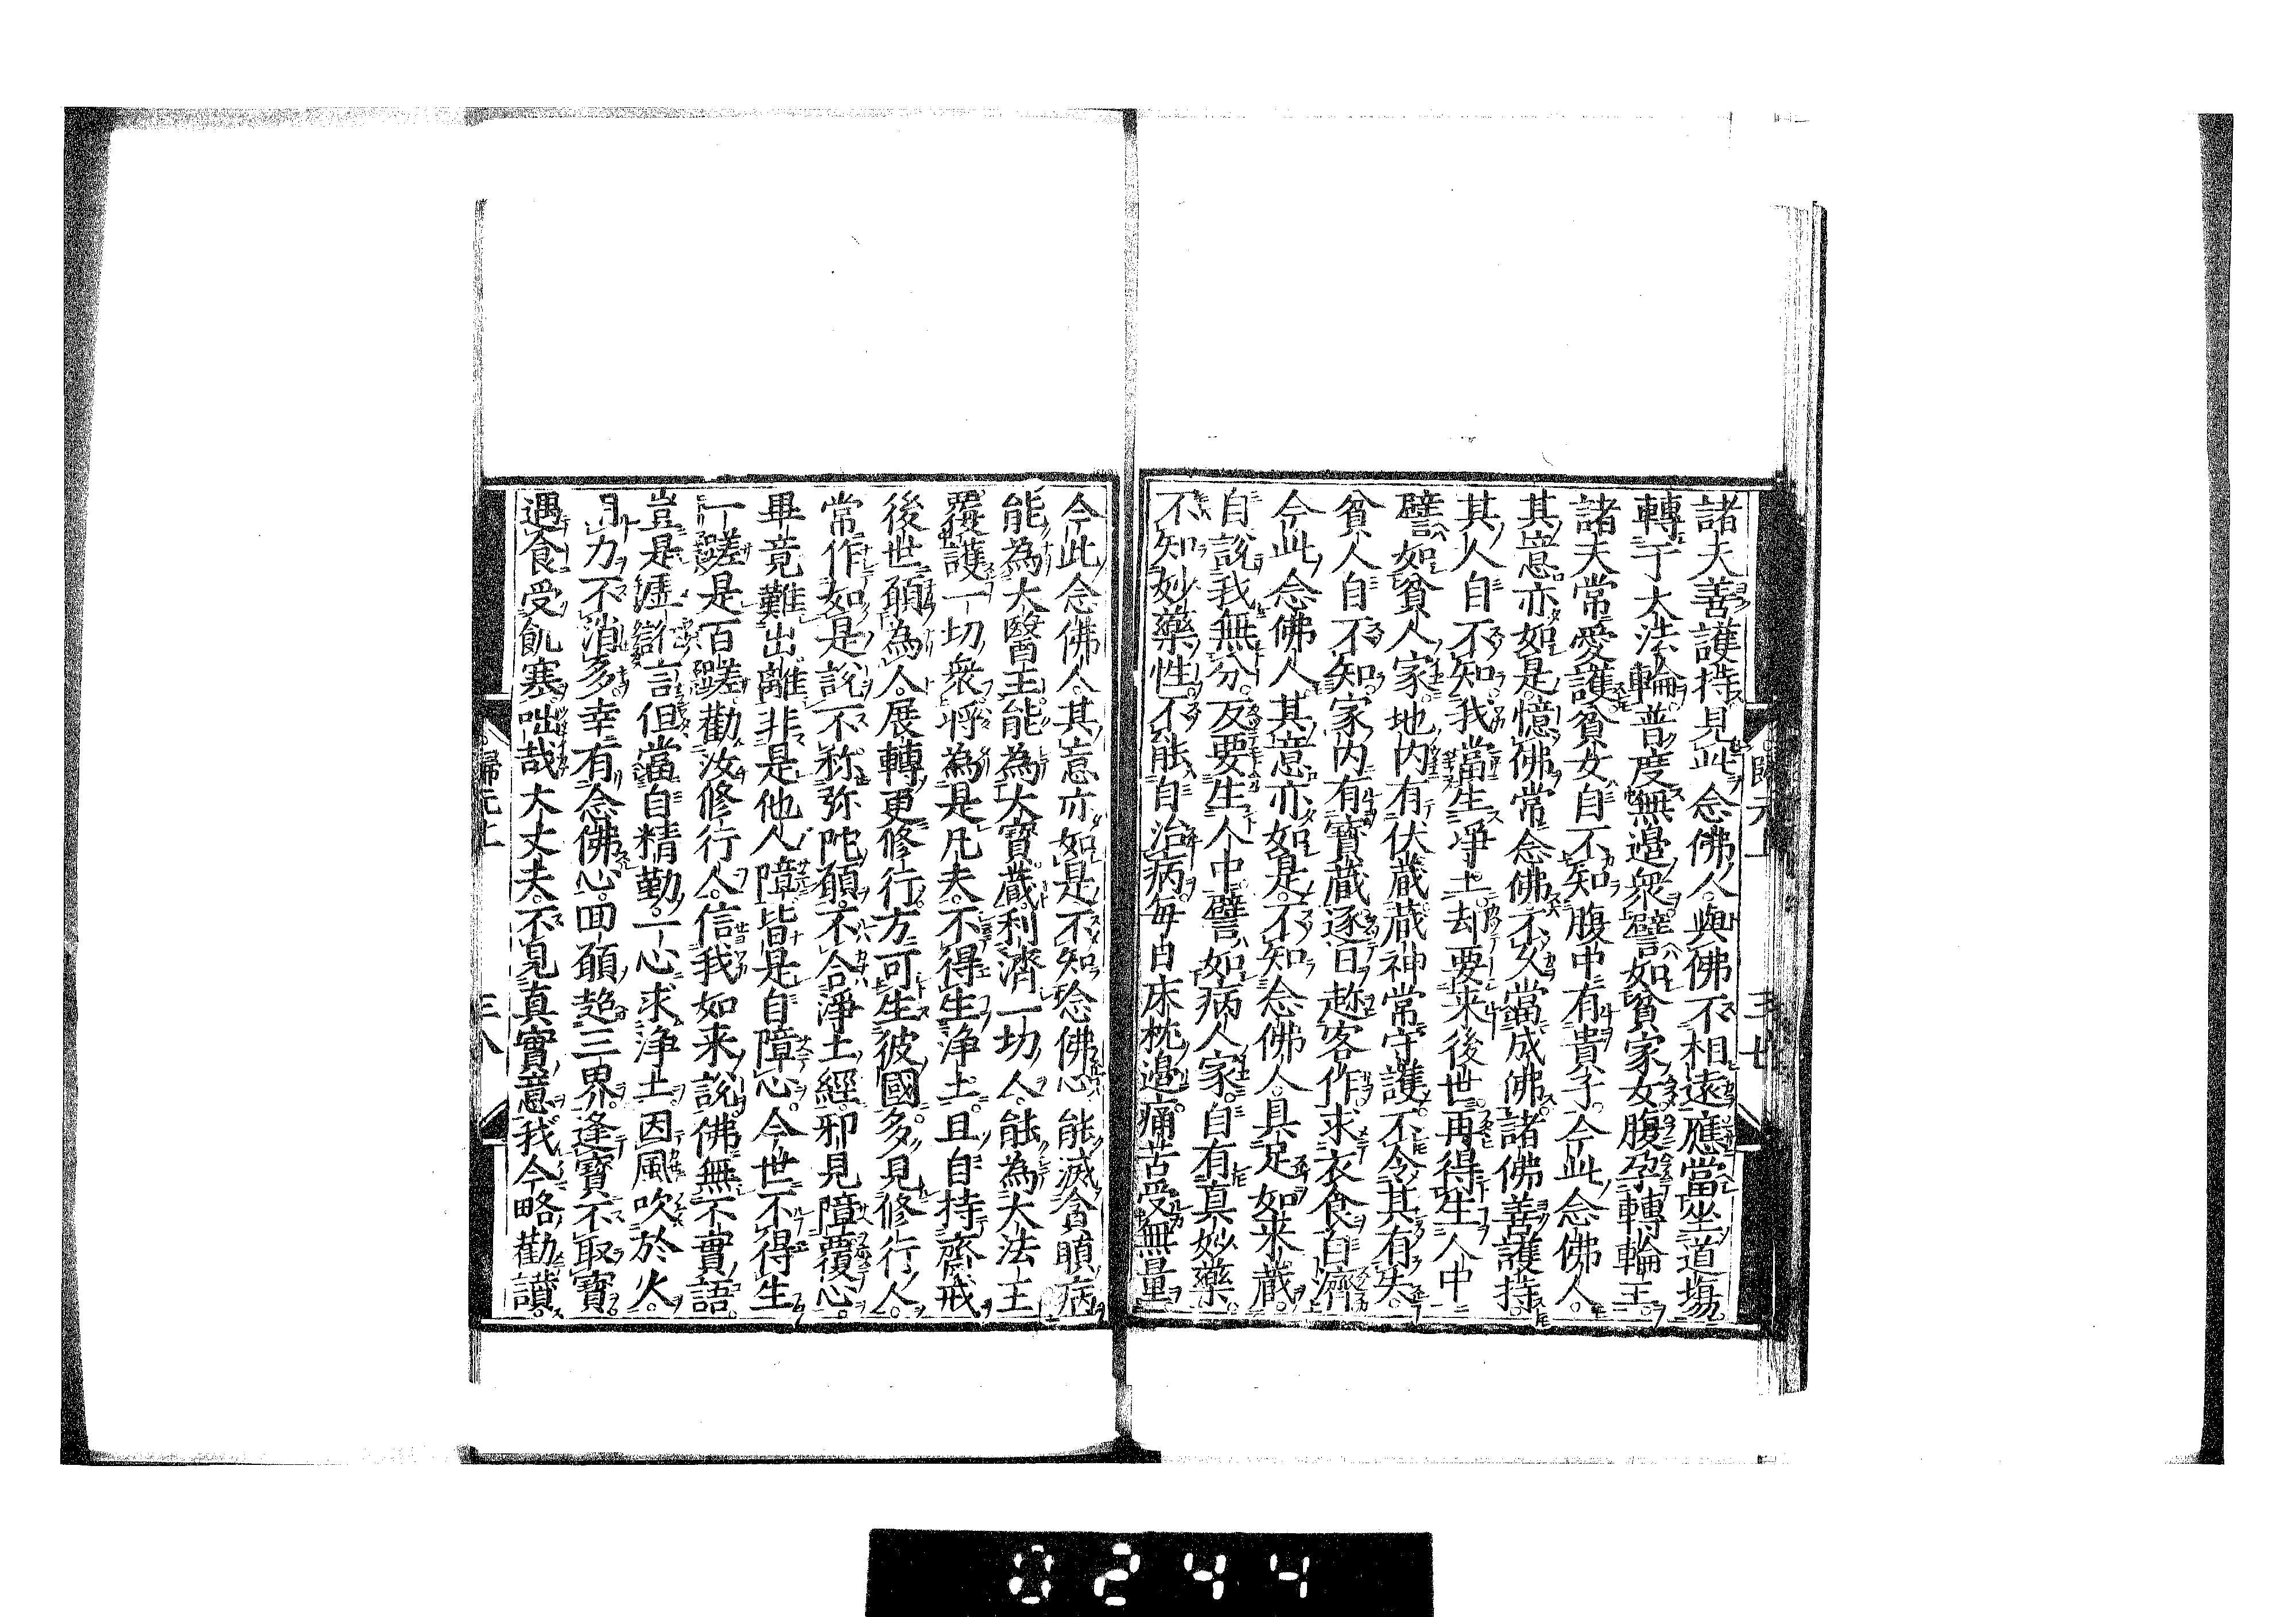 諸天善護持見此念佛人與佛不相遠應當坐道場
轉于大法輪普度無邊衆譬如貧家女腹孕轉輪王
諸天常愛護貧女自不知腹中有貴子今此念佛人
其意亦如是憶佛常念佛不久當成佛諸佛善護持
其人自不知我當生淨土却要来後世再得生人中
譬如貧人家地内有伏藏藏神常守護不令其有失
貧人自不知家内有寶藏逐日趂客作求衣食自濟
今此念佛人其意亦如是不知念佛人具足如来藏
自說我無分反要生人中譬如病人家自有真妙藥
不知妙藥性不能自治病每日床枕邊痛苦受無量
今此念佛人其意亦如是不知念佛心能滅貪瞋病
能為大醫王能為大寶藏利濟一切人能為大法王
覆護一切衆將為是凡夫不得生淨土且自持齋戒
後世願為人展轉更修行方可生彼國多見修行人
常作如是說不称弥陀願不合淨土經邪見障覆心
畢竟難出離非是他人障皆是自障心今世不得生
一蹉是百蹉勸汝修行人信我如来說佛無不實語
豈是虛言但當自精勤一心求淨土因風吹於火
力不消多幸有念佛心回願超三界逢寶不取寶
遇食受飢寒咄哉大丈夫不見真實意我今略勸讃
歸元上
三八
0244